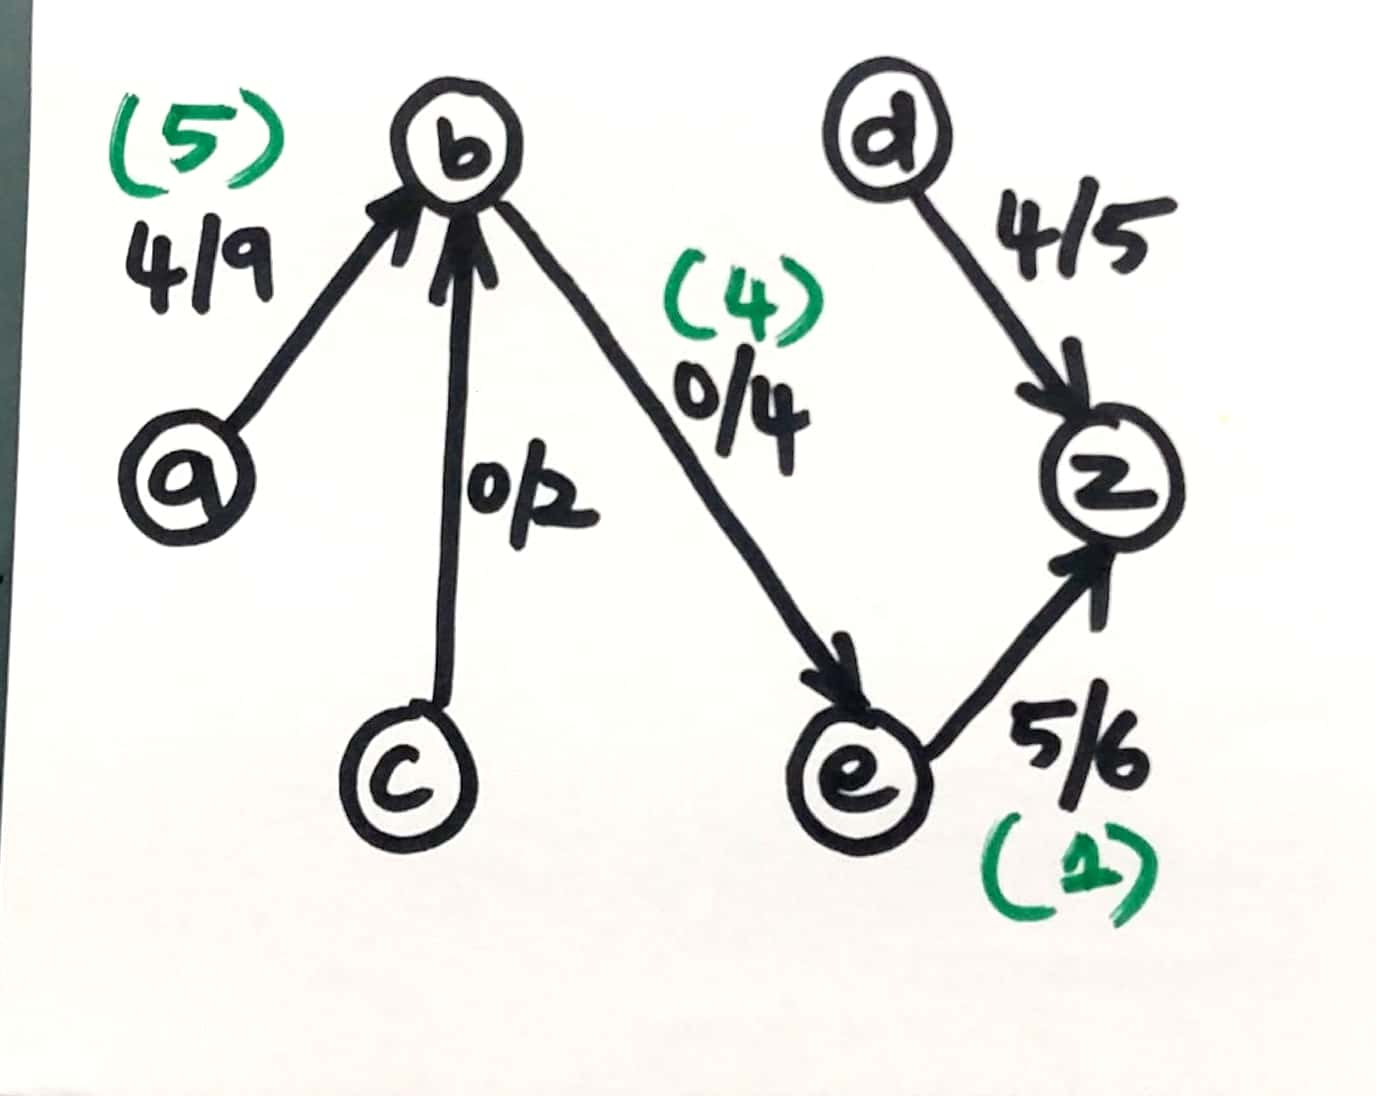 (5)
4/9
b
d
4/5
(4)
0/4
a
0/2
z
c
e
5/6
(1)